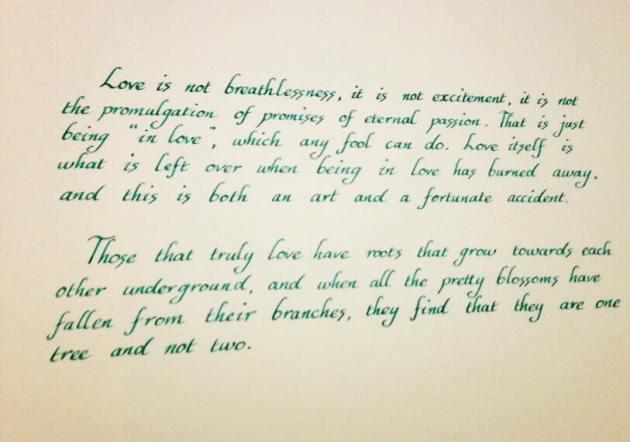 Love is not breathlessness, it is not excitement, it is not
the promulgation of promises of eternal passion. That is just
being "in love", which any fool can do. Love itself is
what is left over when being in love has burned away,
and this is both an art and a fortunate accident.
Those that truly love have roots that grow towards each
other underground, and when all the pretty blossoms have
fallen from their branches, they find that they are one
tree and not two.